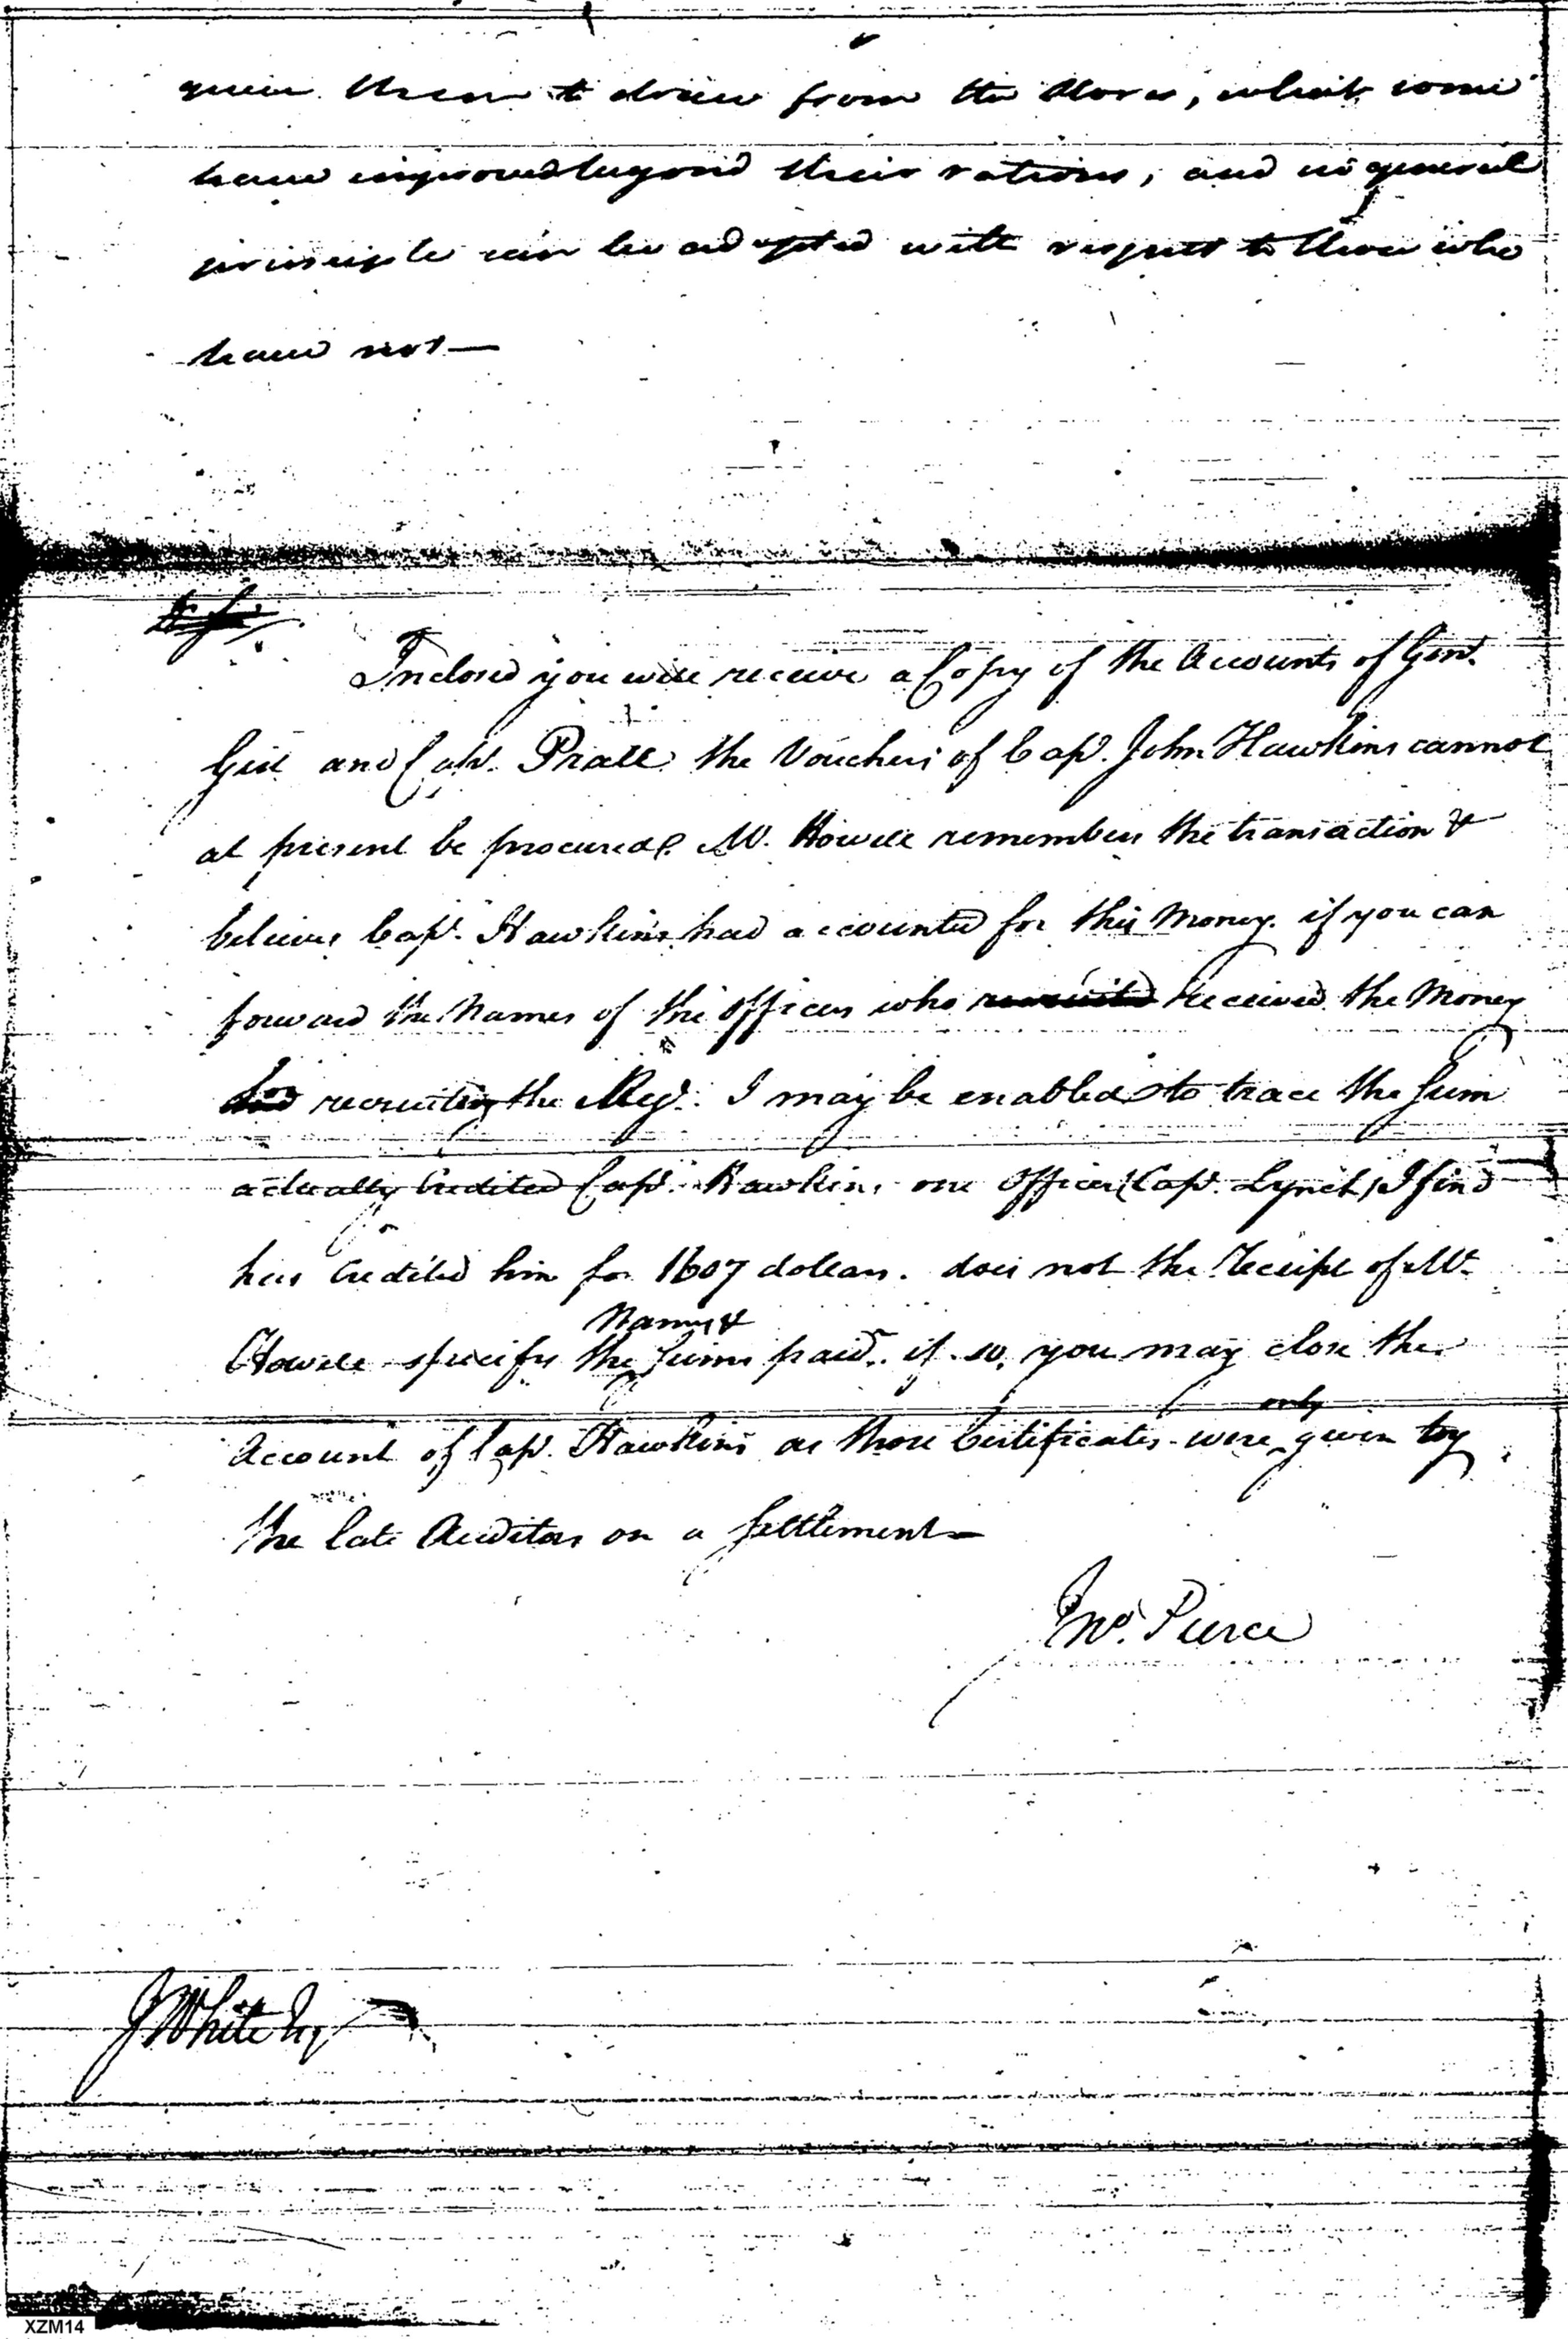 given them to draw from the Stores, which some
have improved beyond their rations, and no general
principle can be adopted with respect to those who
have not —
Inclosed you will receive a Copy of the Accounts of Genl.
Gist and Capt. Prall the Vouchers of Capt. John Hawkins cannot
at present be procured. Mr. Howell remembers the transaction &
believes Capt. Hawkins had accounted for this Money. if you can
forward the Names of the Officers who recruited Received the Money
for recruiting the Regt. I may be enabled to trace the Sum
actually Credited Capt. Hawkins, one Officer (Capt. Lynch) I find
has Credited him for 1607 dollars. does not the Receipt of Mr.
Names &
Howell specify the Sums paid. if so, you may close the
only
Account of Capt. Hawkins as those Certificates were given by
the late Auditors on a Settlement —
Jno. Pierce
J White Esq
XZM14